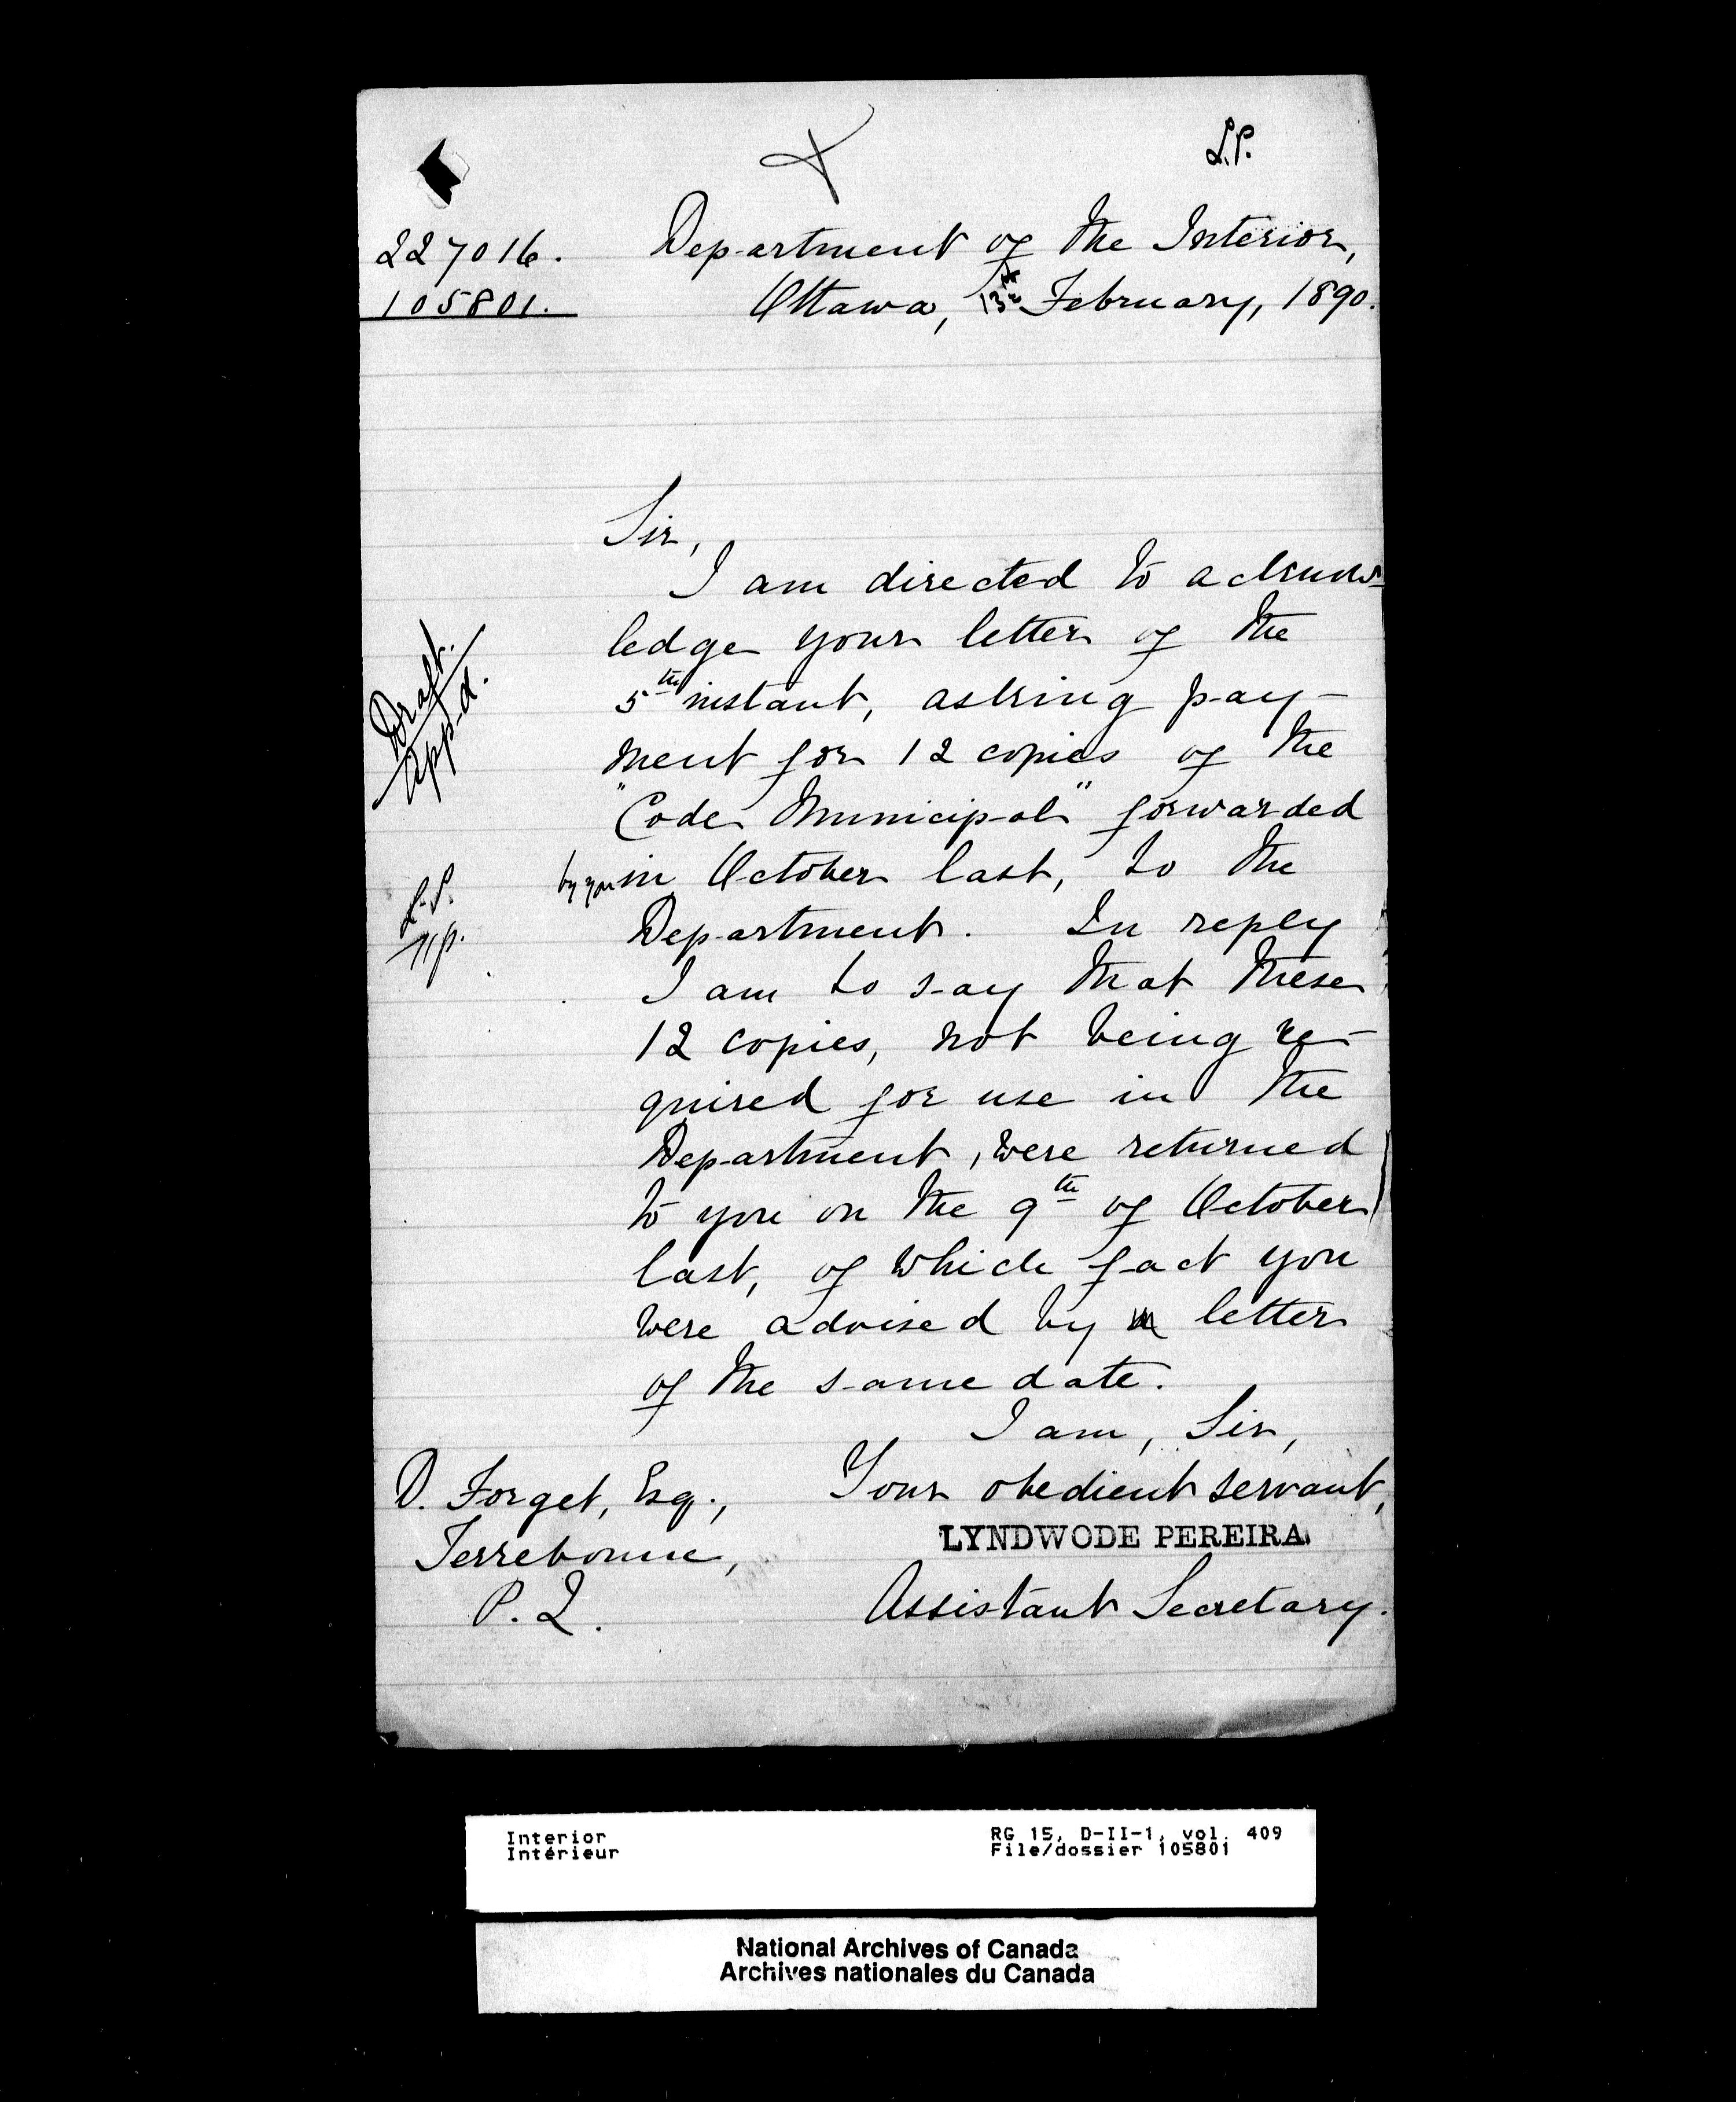 L.P.
227016.
105801.
Department of the Interior,
Ottawa, 13th February, 1890.
Sir,
I am directed to acknow-
ledge your letter of the
5th instant, asking pay-
ment for 12 copies of the
"Code Municipal" forwarded
by you in October last, to the
Department. In reply
I am to say that these
12 copies, not being re-
quired for use in the
Department, were returned
to you on the 9th of October
last, of which fact you
were advised by letter
of the same date.
I am, Sir,
Your obedient servant,
LYNDWODE PEREIRA
Assistant Secretary.
D. Forget, Esq.,
Terrebonne,
P. Q.
Draft.
App-d.
Interior
Intérieur
RG 15, D-II-1, vol. 409
File/dossier 105801
National Archives of Canada
Archives nationales du Canada